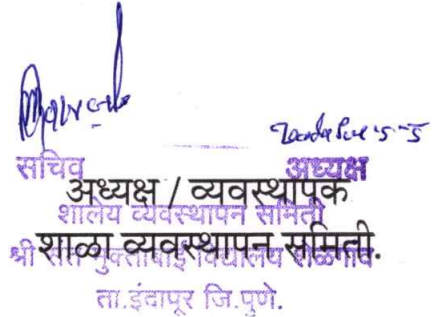 सचिव अध्यक्ष
अध्यक्ष / व्यवस्थापक
शालेय व्यवस्थापन समिती
शाळा व्यवस्थापन समिती.
श्री संत मुक्ताबाई विद्यालय
ता.इंदापूर जि.पुणे.